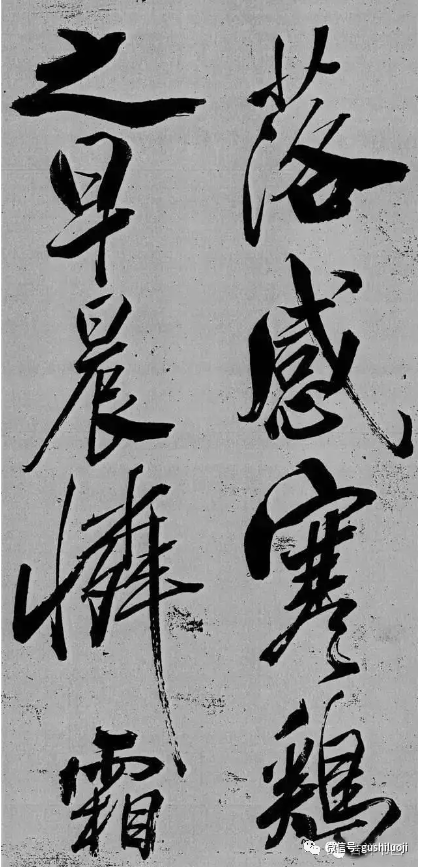 落感寒鷄
之早晨憐霜
微信号: gushiluoji